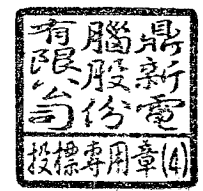 鼎新電
腦股份
有限公司
投標專用章(4)